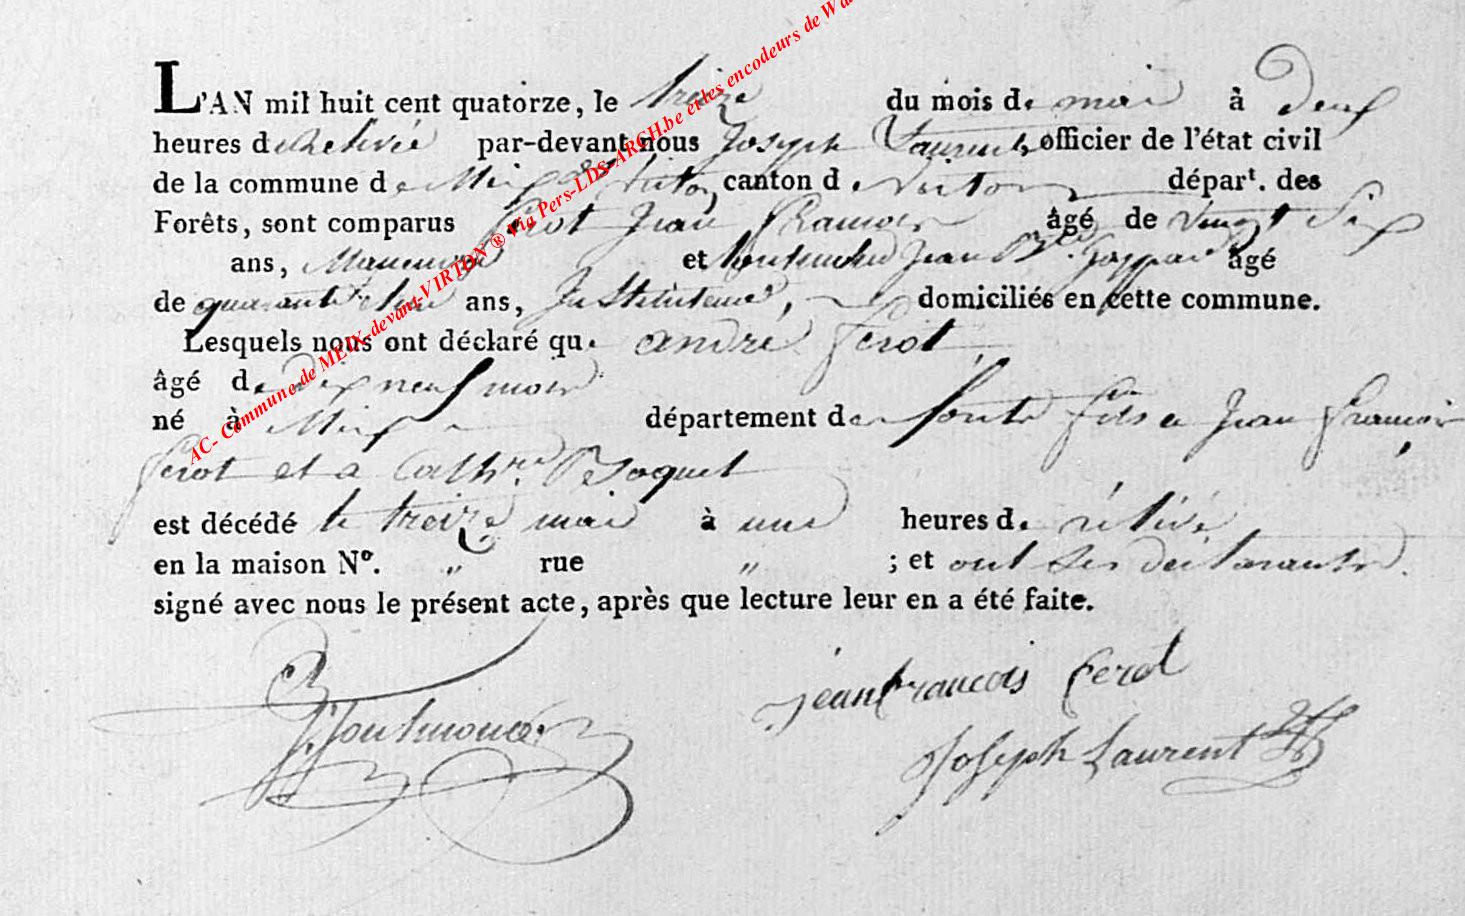 L'AN mil huit cent quatorze, le treize du mois de mai à deux
heures de relivée par-devant nous Joseph Laurent officier de l'état civil
de la commune de Meix dt Virton canton de Virton départ. des
Forêts, sont comparus Ferot Jean François âgé de vingt six
ans, Maneuvre et Jean Bte. Gaspard âgé
de quarante ans, Instituteur, domiciliés en cette commune.
Lesquels nous ont déclaré que andré ferot,
âgé de dix neuf mois
né à Meix département de forets fils a Jean François
ferot et a Cathne.
est décédé le treize mai à une heures de rélivé
en la maison No. " rue " ; et ont les déclarants
signé avec nous le présent acte, après que lecture leur en a été faite.
jean francois ferot
Joseph Laurent
AC- Commune de MEIX-devant-VIRTON ® Via Pers-LDS-ARCH.be et les encodeurs de